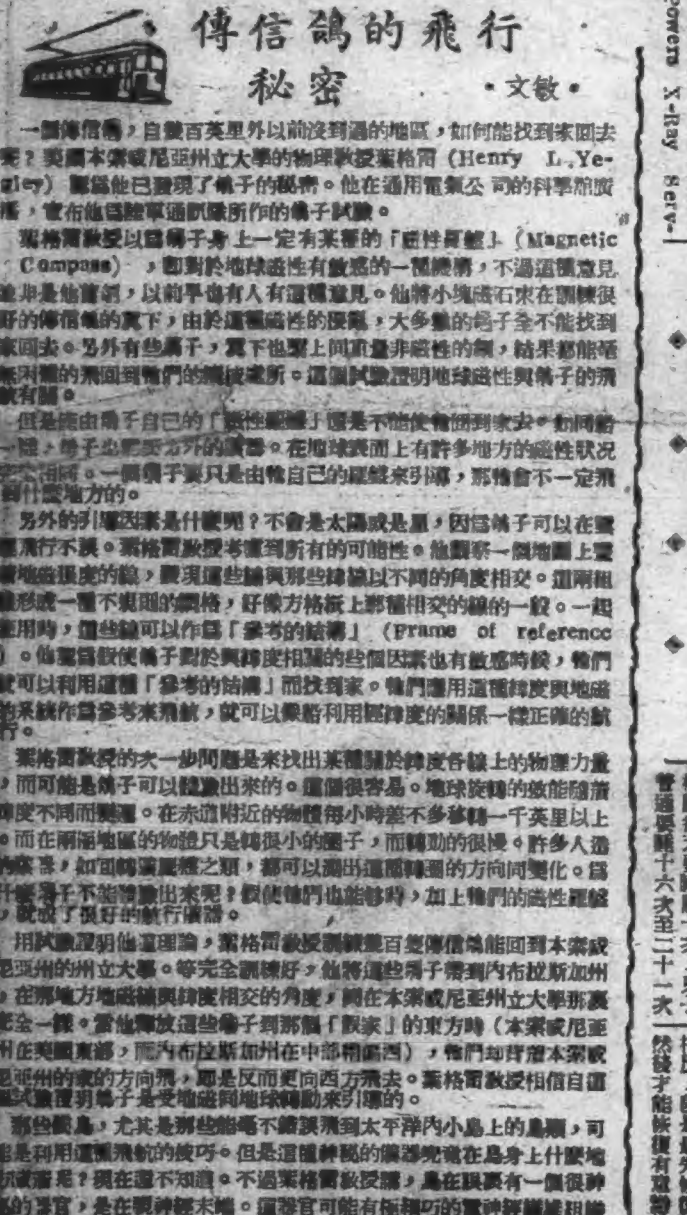 傳信鴿的飛行
秘密
·文敏·
一個傳信鴿，自幾百英里外以前沒到過的地區，如何能找到家回去
呢？美國本索威尼亞州立大學的物理教授葉格爾 (Henry L. Ye-
gley) 認爲他已發現了鴿子的秘密。他在通用電氣公司的科學廣
播，宣布他爲陸軍通訊隊所作的鴿子試驗。
葉格爾教授以爲鴿子身上一定有某種的「磁性羅盤」(Magnetic
Compass) ，卽對於地球磁性有敏感的一種機構，不過這種意見
並非是他首創，以前早也有人有這種意見。他將小塊磁石束在訓練很
好的傳信鴿的翼下，由於這種磁性的擾亂，大多數的鴿子全不能找到
家回去。另外有些鴿子，翼下也繫上同重量非磁性的銅，結果都能毫
無困難的飛回到牠們的處所。這個試驗證明地球磁性與鴿子的飛
航有關。
但是僅由鴿子自己的「磁性羅盤」還是不能使牠回到家去。如同船
一樣，鴿子也需要另外的儀器。在地球表面上有許多地方的磁性狀况
完全相同。一個鴿子要只是由牠自己的羅盤來引導，那牠會不一定飛
到什麼地方的。
另外的引導因素是什麼呢？不會是太陽或是星，因爲鴿子可以在雲
裡飛行不誤。葉格爾教授考慮到所有的可能性。他觀察一個地圖上電
磁地磁强度的線，發現這些線與那些緯線以不同的角度相交。這兩組
線形成一種不規則的網格，好像方格紙上那種相交的線的一般。一起
使用時，這些線可以作爲「參考的結構」 (Frame of reference
) 。他認爲假使鴿子對於與緯度相關的些個因素也有敏感時候，牠們
就可以利用這種「參考的結構」而找到家。牠們應用這種緯度與地磁
的系統作爲參考來飛航，就可以像船利用經緯度的關係一樣正確的航
行。
葉格爾教授的次一步問題是來找出某種關於緯度各線上的物理力量
，而可能是鴿子可以體驗出來的。這個很容易。地球旋轉的效能隨着
緯度不同而變。在赤道附近的物體每小時差不多移轉一千英里以上
。而在兩極地區的物體只是轉很小的圈子，而轉動的很慢。許多人造
的儀器，如迴轉羅盤之類，都可以測出這種轉圈的方向同變化。爲
什麼鴿子不能體驗出來呢？假使牠們也能够時，加上牠們的磁性羅盤
，就成了很好的航行儀器。
用試驗證明他這理論，葉格爾教授訓練幾百隻傳信鴿能回到本索威
尼亞州的州立大學。等完全訓練好，他將這些鴿子帶到內布拉斯加州
，在那地方地磁線與緯度相交的角度，同在本索威尼亞州立大學那裏
完全一樣。當他釋放這些鴿子到那個「假家」的東方時（本索威尼亞
州在美國東部，而內布拉斯加州在中部稍偏西），牠們却背着本索威
尼亞州的家的方向飛，卽是反而更向西方飛去。葉格爾教授相信自這
試驗證明鴿子是受地磁同地球轉動來引導的。
那些候鳥，尤其是那些能毫不錯誤飛到太平洋內小島上的鳥類，可
能是利用這種飛航的技巧。但是這種神秘的儀器究竟在鳥身上什麼地
方呢？現在還不知道。不過葉格爾教授講，鳥在眼裏有一個很神
的器官，是在視神經末端。這器官可能有極
Powers X-Ray Serv-
普通要睡十六次至二十一次
然後才能恢復有意